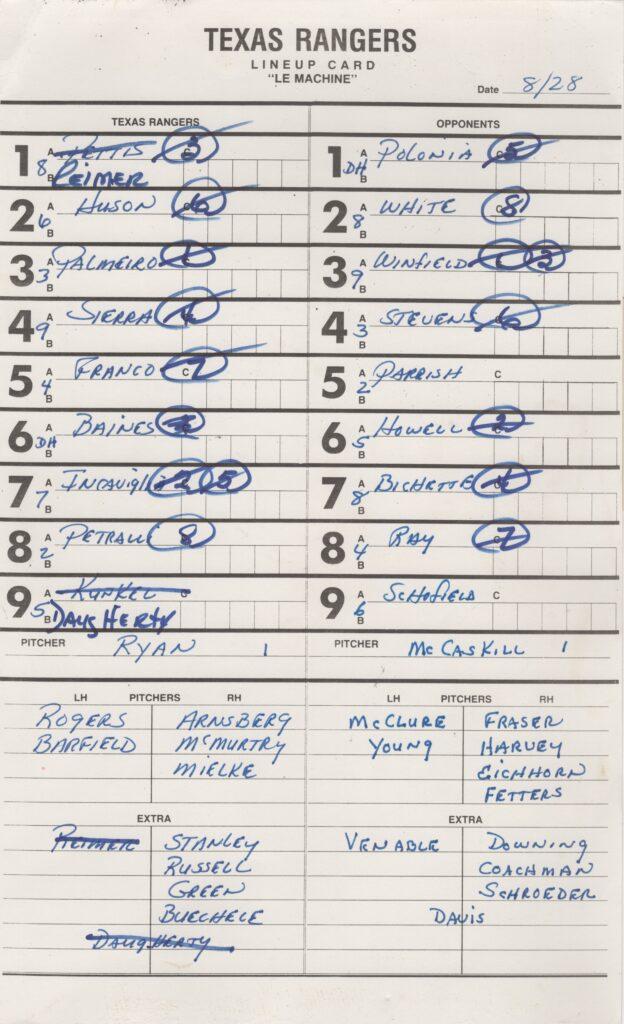 TEXAS RANGERS
LINEUP CARD
"LE MACHINE"
Date 8/28
TEXAS RANGERS
1 A PETTIS C 3
8 B REIMER
2 A HUSON C 6
6 B
3 A PALMEIRO C
3 B
4 A SIERRA C
9 B
5 A FRANCO C 7
4 B
6 A BAINES C
DH B
7 A INCAVIGL 2 5
7 B
8 A PETRALLI 8
2 B
9 A KUNKEL C
5 B DAUGHERTY
PITCHER RYAN 1
OPPONENTS
1 A POLONIA C 5
DH B
2 A WHITE C 8
8 B
3 A WINFIELD C 3
9 B
4 A STEVENS C 6
3 B
5 A PARRISH C
2 B
6 A HOWELL C 2
5 B
7 A BICHETTE C
8 B
8 A RAY C 7
4 B
9 A SCHOFIELD C
6 B
PITCHER McCASKILL 1
LH PITCHERS RH
ROGERS ARNSBERG
BARFIELD McMURTRY
MIELKE
EXTRA
REIMER STANLEY
RUSSELL
GREEN
BUECHELE
DAUGHERTY
LH PITCHERS RH
McCLURE FRASER
YOUNG HARVEY
EICHHORN
FETTERS
EXTRA
VENABLE DOWNING
COACHMAN
SCHROEDER
DAVIS